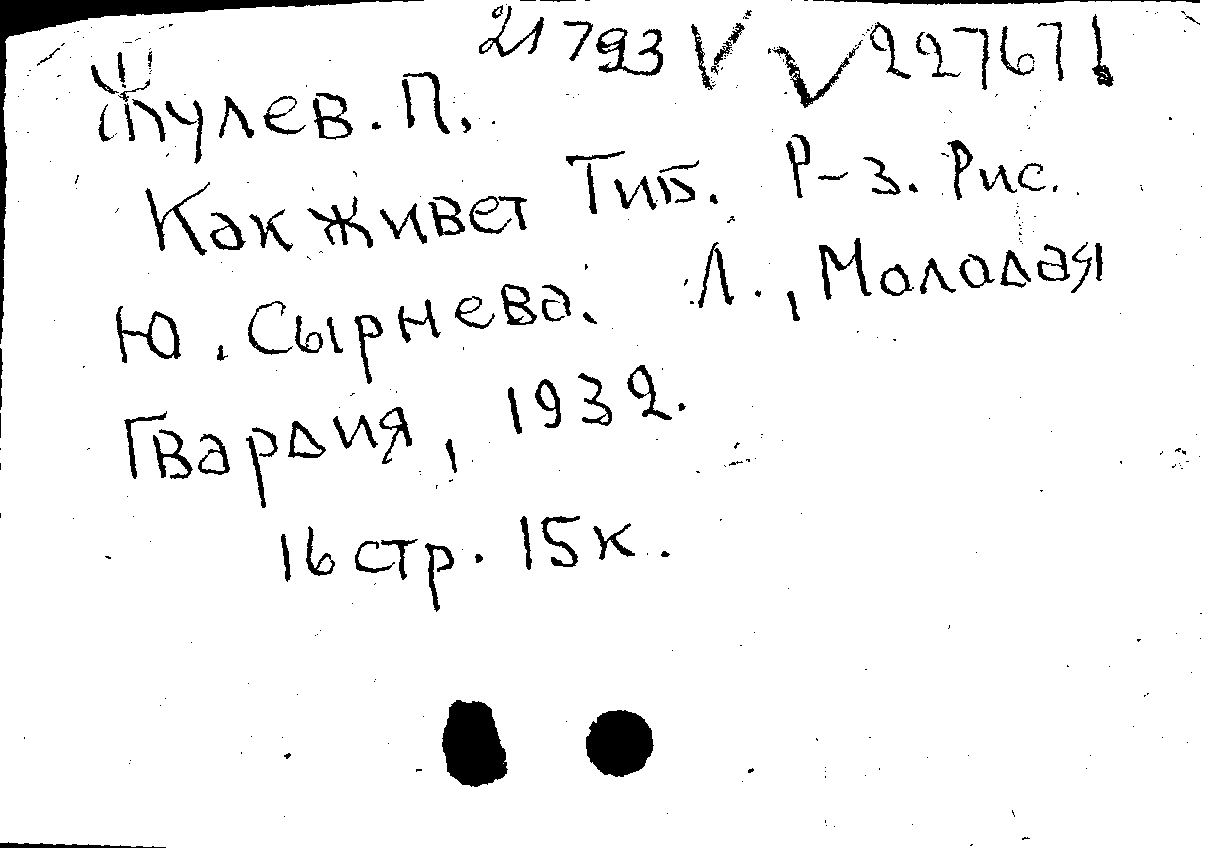 21793 V √ 22767!
Жулев. П.
Как живет Тиб. Р-з. Рис.
Ю. Сырнева. Л., Молодая
Гвардия, 1932.
16 стр. 15к.